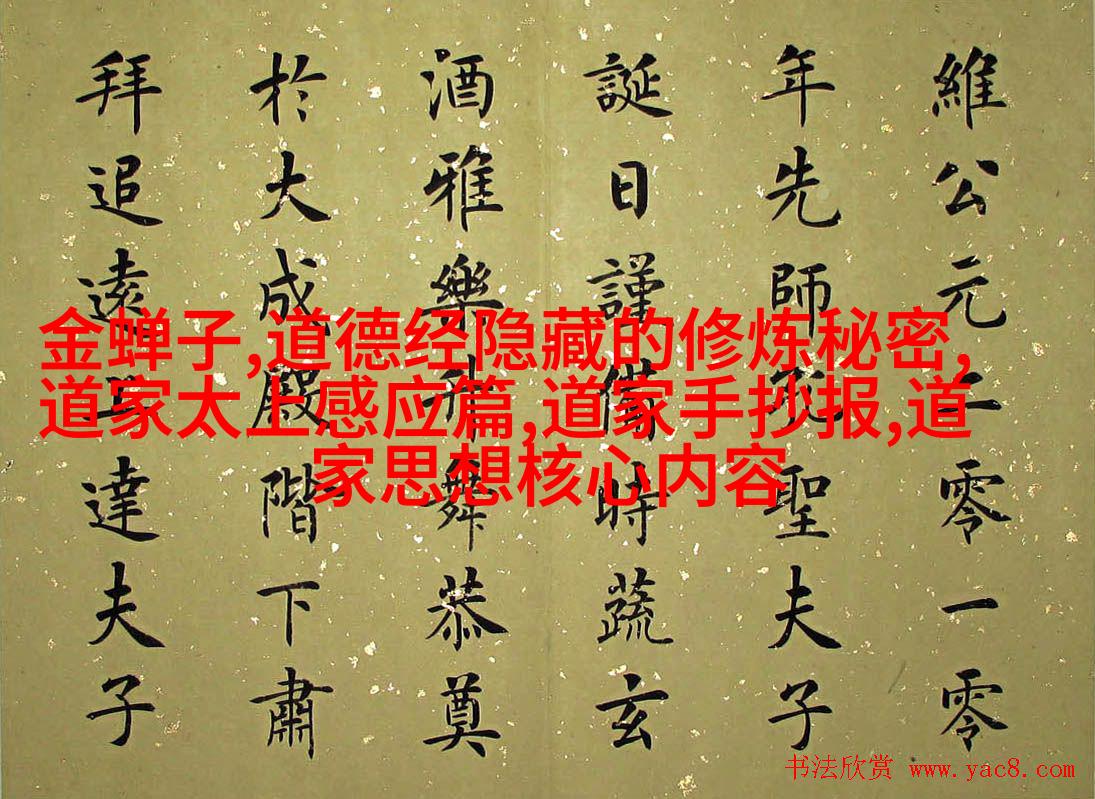 維公元二零一零
年先師孔聖夫子
誕日謹備時蔬玄
酒雅樂舞恭奠
於大成殿階下肅
拜追遠上達夫子
金蝉子,道德经隐藏的修炼秘密,
道家太上感应篇,道家手抄报,道
家思想核心内容
书法欣赏 www.yac8.com